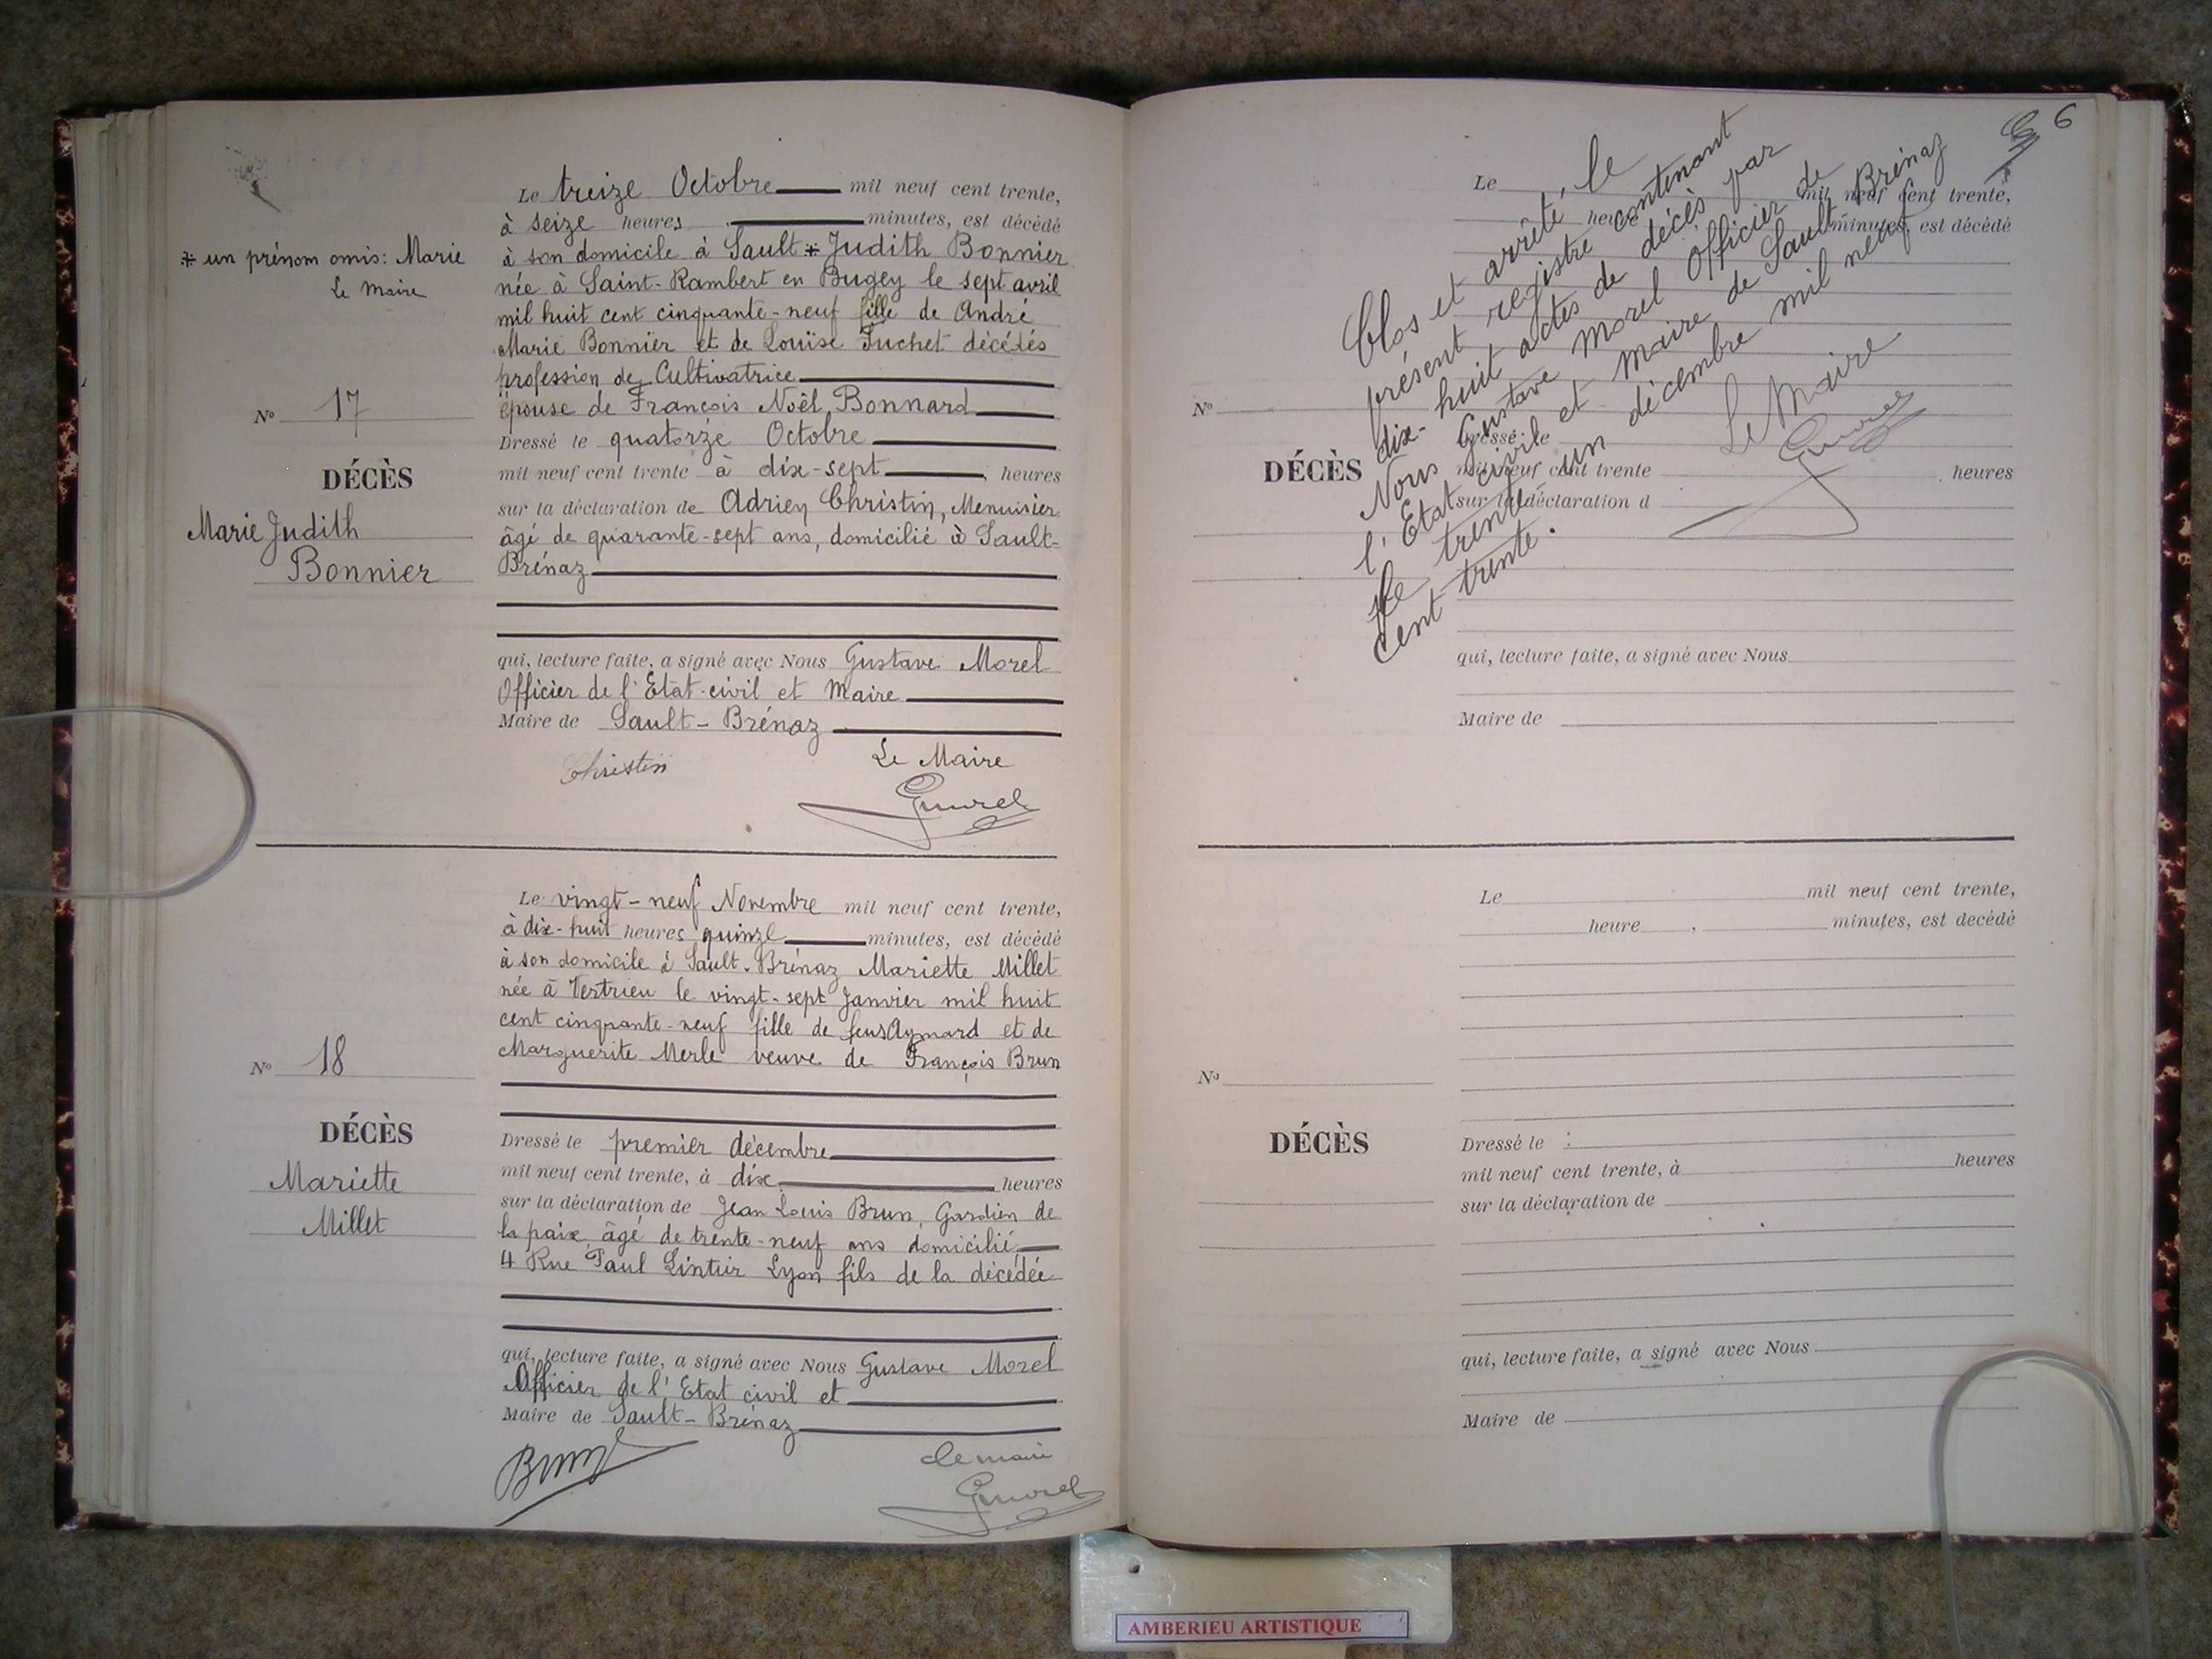 Le treize Octobre mil neuf cent trente,
à seize heures minutes, est décédé
* un prénom omis: Marie
Le Maire
à son domicile à Sault * Judith Bonnier
née à Saint-Rambert en Bugey le sept avril
mil huit cent cinquante-neuf fille de André
Marie Bonnier et de Louise Juchet décédés
profession de Cultivatrice
épouse de François Noël Bonnard
N° 17
DÉCÈS
Marie Judith
Bonnier
Dressé le quatorze Octobre
mil neuf cent trente à dix-sept heures
sur la déclaration de Adrien Christin, Menuisier
âgé de quarante-sept ans, domicilié à Sault-
Brénaz
qui, lecture faite, a signé avec Nous Gustave Morel
Officier de l'Etat-civil et Maire
Maire de Sault-Brénaz
Christin
Le Maire
GMorel
Le vingt-neuf Novembre mil neuf cent trente,
à dix-huit heures quinze minutes, est décédé
à son domicile à Sault-Brénaz Mariette Millet
née à Vertrieu le vingt-sept Janvier mil huit
cent cinquante-neuf fille de feus Aymard et de
Marguerite Merle veuve de François Brun
N° 18
DÉCÈS
Mariette
Millet
Dressé le premier décembre
mil neuf cent trente, à dix heures
sur la déclaration de Jean Louis Brun, Gardien de
la paix, âgé de trente-neuf ans domicilié
4 Rue Paul Lyon fils de la décédée
qui, lecture faite, a signé avec Nous Gustave Morel
Officier de l'Etat civil et
Maire de Sault-Brénaz
Brun
Le maire
GMorel
6
Le mil neuf cent trente,
heure minutes, est décédé
N°
DÉCÈS
Dressé le
mil neuf cent trente heures
sur la déclaration d
qui, lecture faite, a signé avec Nous
Maire de
Clos et arrêté, le
présent registre contenant
dix-huit actes de décès par
Nous Gustave Morel Officier de
l'Etat civil et Maire de Sault Brénaz
Le trente un décembre mil neuf
cent trente.
Le Maire
GMorel
Le mil neuf cent trente,
heure minutes, est decédé
N°
DÉCÈS
Dressé le
mil neuf cent trente, à heures
sur la déclaration de
qui, lecture faite, a signé avec Nous
Maire de
AMBERIEU ARTISTIQUE